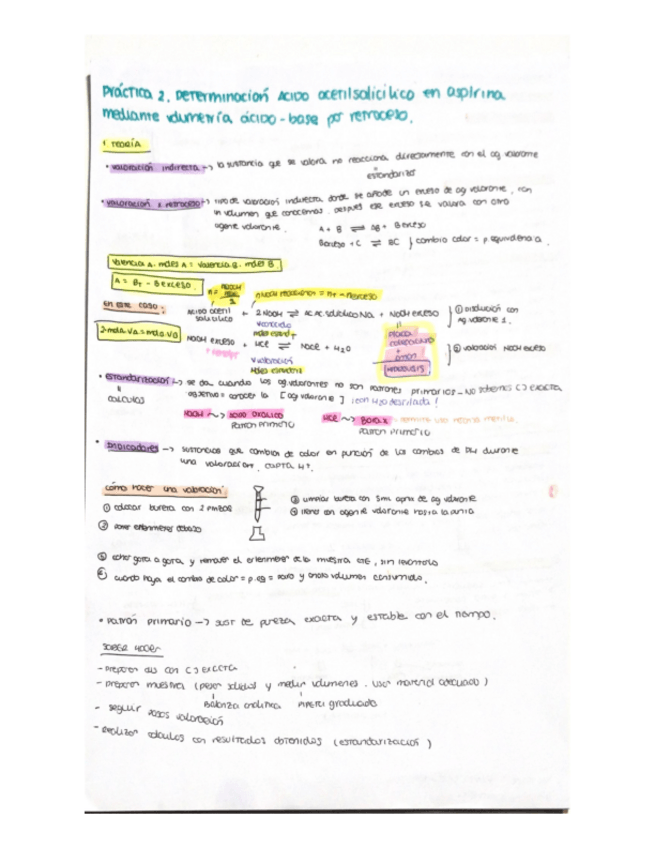 Práctica 2. Determinación Ácido acetilsalicílico en aspirina
mediante volumetría ácido-base por retroceso.
1. TEORÍA
• valoración indirecta → la sustancia que se valora no reacciona directamente con el ag valorante
estandarizo
• valoración x retroceso → tipo de valoración indirecta donde se añade un exceso de ag valorante, con
un volumen que conocemos. Después ese exceso se valora con otro
agente valorante.
A + B ⇌ AB + Bexceso
Bexceso + C ⇌ BC } cambio color = p. equivalencia.
Valencia A · moles A = Valencia B · moles B
A = BT - Bexceso
n NaOH reaccionan = nT - nexceso
En este caso:
Ácido acetil salicílico + 2 NaOH ⇌ Ac. AC. salicílico Na + NaOH exceso } ① disolución con ag valorante 1.
2 · mola · Va = molb · Vb
NaOH exceso + HCl ⇌ NaCl + H2O } ② valoración NaOH exceso
V valoración
placa calefactora
+
HIDRÓLISIS
• Estandarización → se da cuando los ag valorantes no son patrones primarios - No sabemos [ ] exacta
CÁLCULOS
objetivo = conocer la [ag valorante] ¡con H2O destilada!
NaOH ~> ácido oxálico
PATRÓN PRIMARIO
HCl ~> Borax
PATRÓN PRIMARIO
• Indicadores → sustancias que cambian de color en función de los cambios de pH durante
una valoración. Capta H+.
Cómo hacer una valoración:
① colocar bureta con 2 pinzas
② poner erlenmeyer debajo
③ limpiar bureta con 5mL aprox de ag valorante
④ lleno con agente valorante hasta la punta
⑤ echar gota a gota y remover el erlenmeyer
⑥ cuando haya el cambio de color = p. eq = paro y anoto volumen consumido.
• Patrón primario → sust de pureza exacta y estable con el tiempo.
SABER HACER
- preparar dis con [ ] exacta
- preparar muestra (pesar sólidos y medir volúmenes. Usar material adecuado)
Balanza analítica Pipeta graduada
- seguir pasos valoración
- realizar cálculos con resultados obtenidos (estandarización)